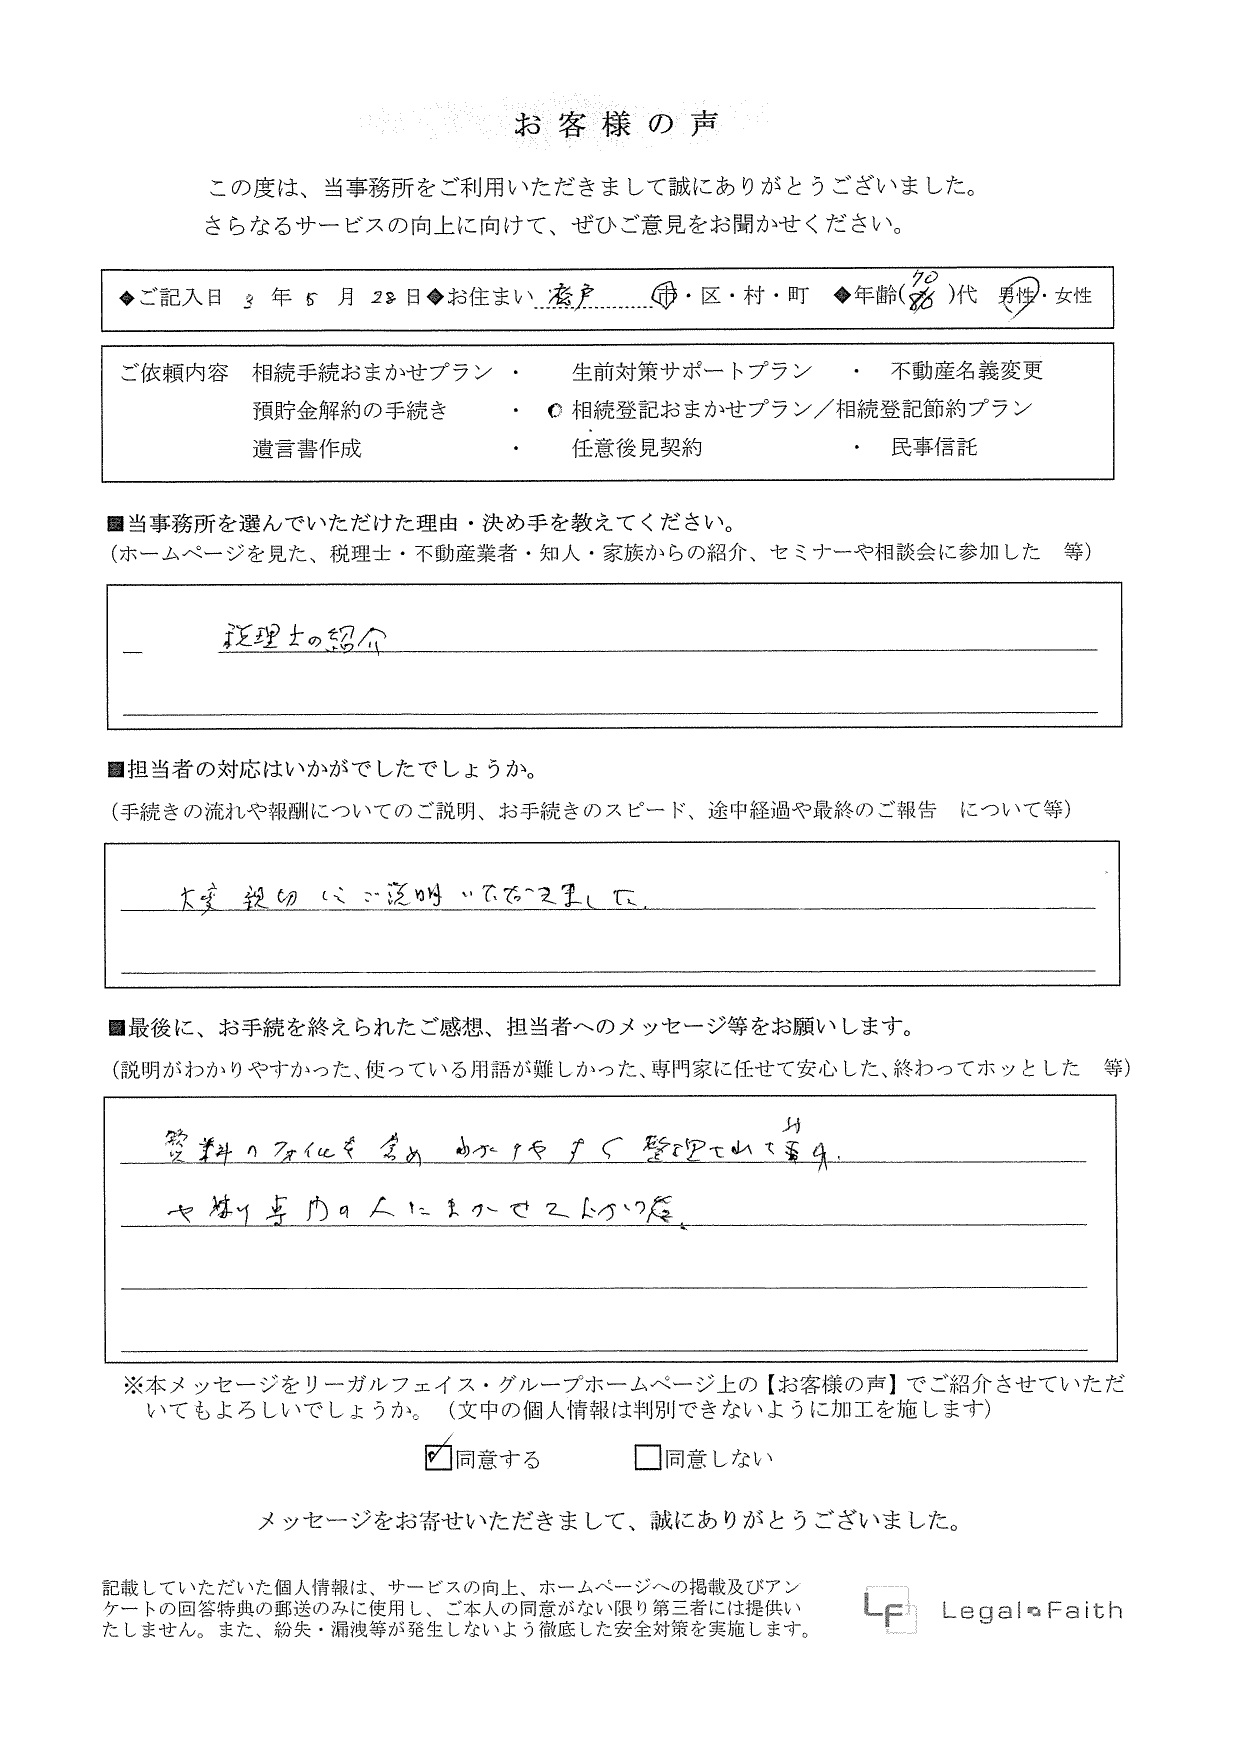 お客様の声
この度は、当事務所をご利用いただきまして誠にありがとうございました。
さらなるサービスの向上に向けて、ぜひご意見をお聞かせください。
◆ご記入日 3 年 5 月 28 日◆お住まい 市・区・村・町 ◆年齢(70)代 男性・女性
ご依頼内容 相続手続おまかせプラン ・ 生前対策サポートプラン ・ 不動産名義変更
預貯金解約の手続き ・ 相続登記おまかせプラン／相続登記節約プラン
遺言書作成 ・ 任意後見契約 ・ 民事信託
■当事務所を選んでいただけた理由・決め手を教えてください。
（ホームページを見た、税理士・不動産業者・知人・家族からの紹介、セミナーや相談会に参加した 等）
税理士の紹介
■担当者の対応はいかがでしたでしょうか。
（手続きの流れや報酬についてのご説明、お手続きのスピード、途中経過や最終のご報告 について等）
大変親切にご説明いただきました。
■最後に、お手続を終えられたご感想、担当者へのメッセージ等をお願いします。
（説明がわかりやすかった、使っている用語が難しかった、専門家に任せて安心した、終わってホッとした 等）
資料の を含め わかりやすく整理されて
やはり専門の人にまかせてよかった。
※本メッセージをリーガルフェイス・グループホームページ上の【お客様の声】でご紹介させていただ
いてもよろしいでしょうか。（文中の個人情報は判別できないように加工を施します）
同意する 同意しない
メッセージをお寄せいただきまして、誠にありがとうございました。
記載していただいた個人情報は、サービスの向上、ホームページへの掲載及びアン
ケートの回答特典の郵送のみに使用し、ご本人の同意がない限り第三者には提供い
たしません。また、紛失・漏洩等が発生しないよう徹底した安全対策を実施します。
LF Legal Faith